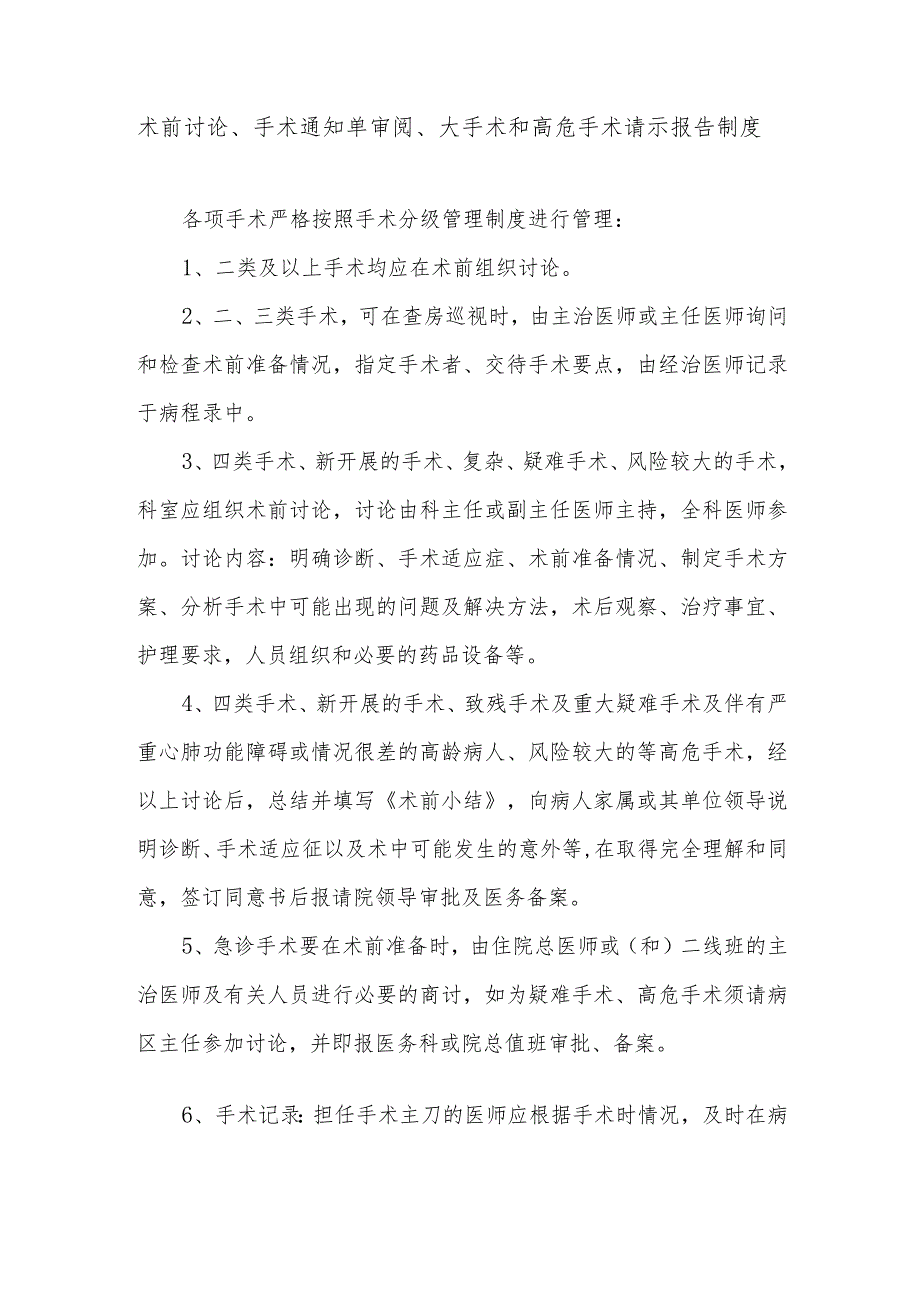 术前讨论、手术通知单审阅、大手术和高危手术请示报告制度
各项手术严格按照手术分级管理制度进行管理：
1、二类及以上手术均应在术前组织讨论。
2、二、三类手术，可在查房巡视时，由主治医师或主任医师询问
和检查术前准备情况，指定手术者、交待手术要点，由经治医师记录
于病程录中。
3、四类手术、新开展的手术、复杂、疑难手术、风险较大的手术，
科室应组织术前讨论，讨论由科主任或副主任医师主持，全科医师参
加。讨论内容：明确诊断、手术适应症、术前准备情况、制定手术方
案、分析手术中可能出现的问题及解决方法，术后观察、治疗事宜、
护理要求，人员组织和必要的药品设备等。
4、四类手术、新开展的手术、致残手术及重大疑难手术及伴有严
重心肺功能障碍或情况很差的高龄病人、风险较大的等高危手术，经
以上讨论后，总结并填写《术前小结》，向病人家属或其单位领导说
明诊断、手术适应征以及术中可能发生的意外等,在取得完全理解和同
意，签订同意书后报请院领导审批及医务备案。
5、急诊手术要在术前准备时，由住院总医师或（和）二线班的主
治医师及有关人员进行必要的商讨，如为疑难手术、高危手术须请病
区主任参加讨论，并即报医务科或院总值班审批、备案。
6、手术记录：担任手术主刀的医师应根据手术时情况，及时在病